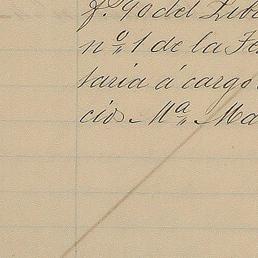 f. 90 del Lib
nº 1 de la Fe
taria á cargo
cio. Mª Ma